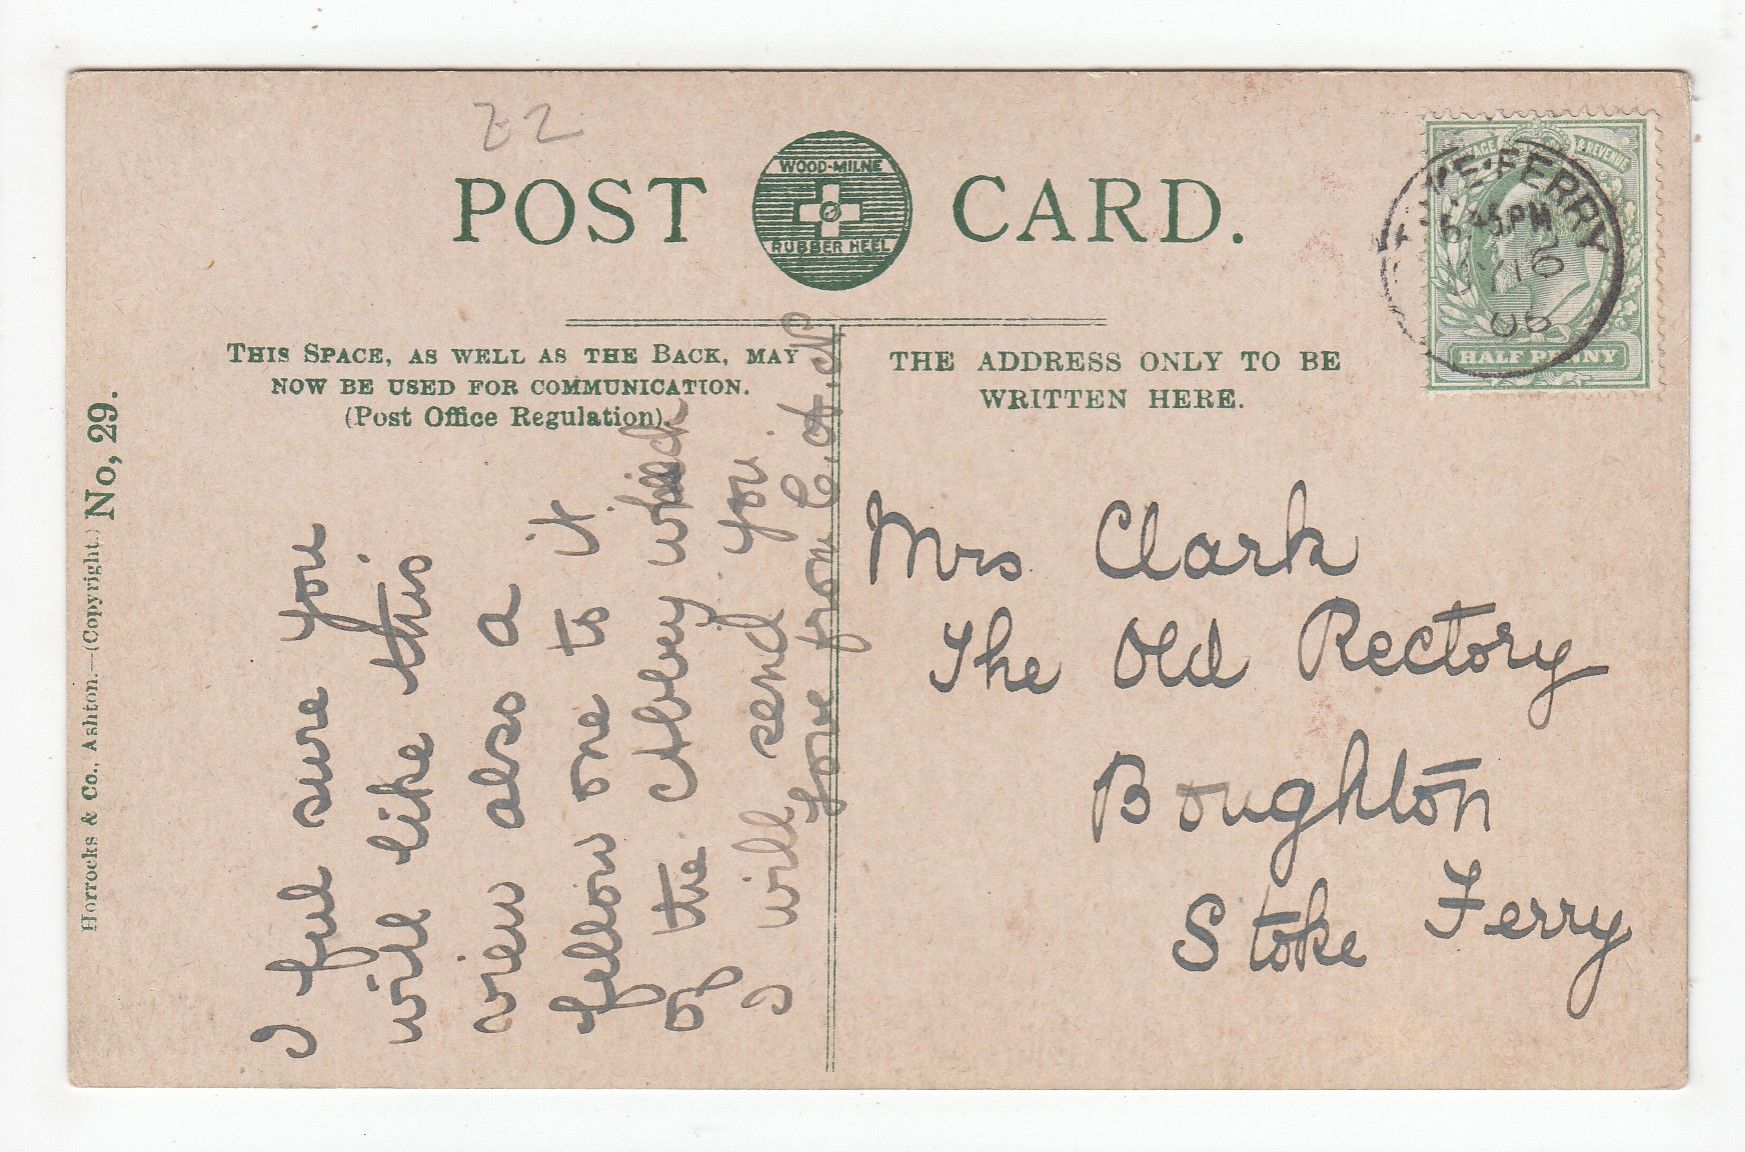 Z2
POST CARD.
WOOD-MILNE
RUBBER HEEL
THIS SPACE, AS WELL AS THE BACK, MAY
NOW BE USED FOR COMMUNICATION.
(Post Office Regulation).
THE ADDRESS ONLY TO BE
WRITTEN HERE.
Horrocks & Co., Ashton.—(Copyright.) No, 29.
I feel sure you
will like this
view also a
fellow one to it
of the Abbey which
I will send you.
love from C.A.N
Mrs Clark
The Old Rectory
Boughton
Stoke Ferry
POSTAGE & REVENUE
HALF PENNY
KE·FERRY
5 45PM
JY 16
06